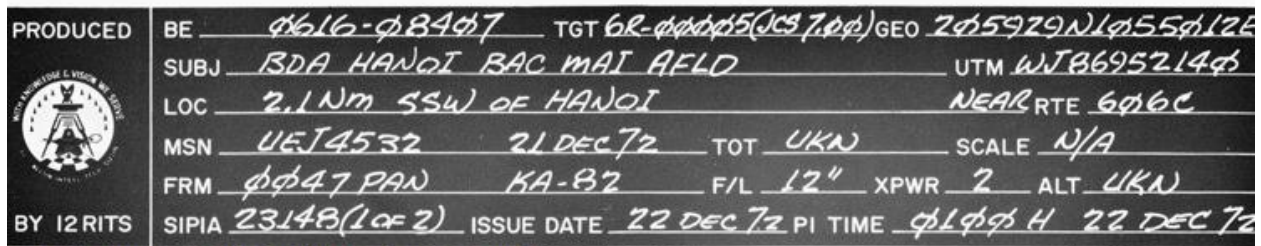 PRODUCED
WITH KNOWLEDGE & VISION WE SERVE
BY 12 RITS
BE 0616-08407 TGT 6R-00005(JCS 7.00) GEO 205929N1055012E
SUBJ BDA HANOI BAC MAI AFLD UTM WJ86952140
LOC 2.1 Nm SSW OF HANOI NEAR RTE 606C
MSN UEJ4532 21 DEC 72 TOT UKN SCALE N/A
FRM 0047 PAN KA-82 F/L 12" XPWR 2 ALT UKN
SIPIA 23148(1 OF 2) ISSUE DATE 22 DEC 72 PI TIME 0100 H 22 DEC 72